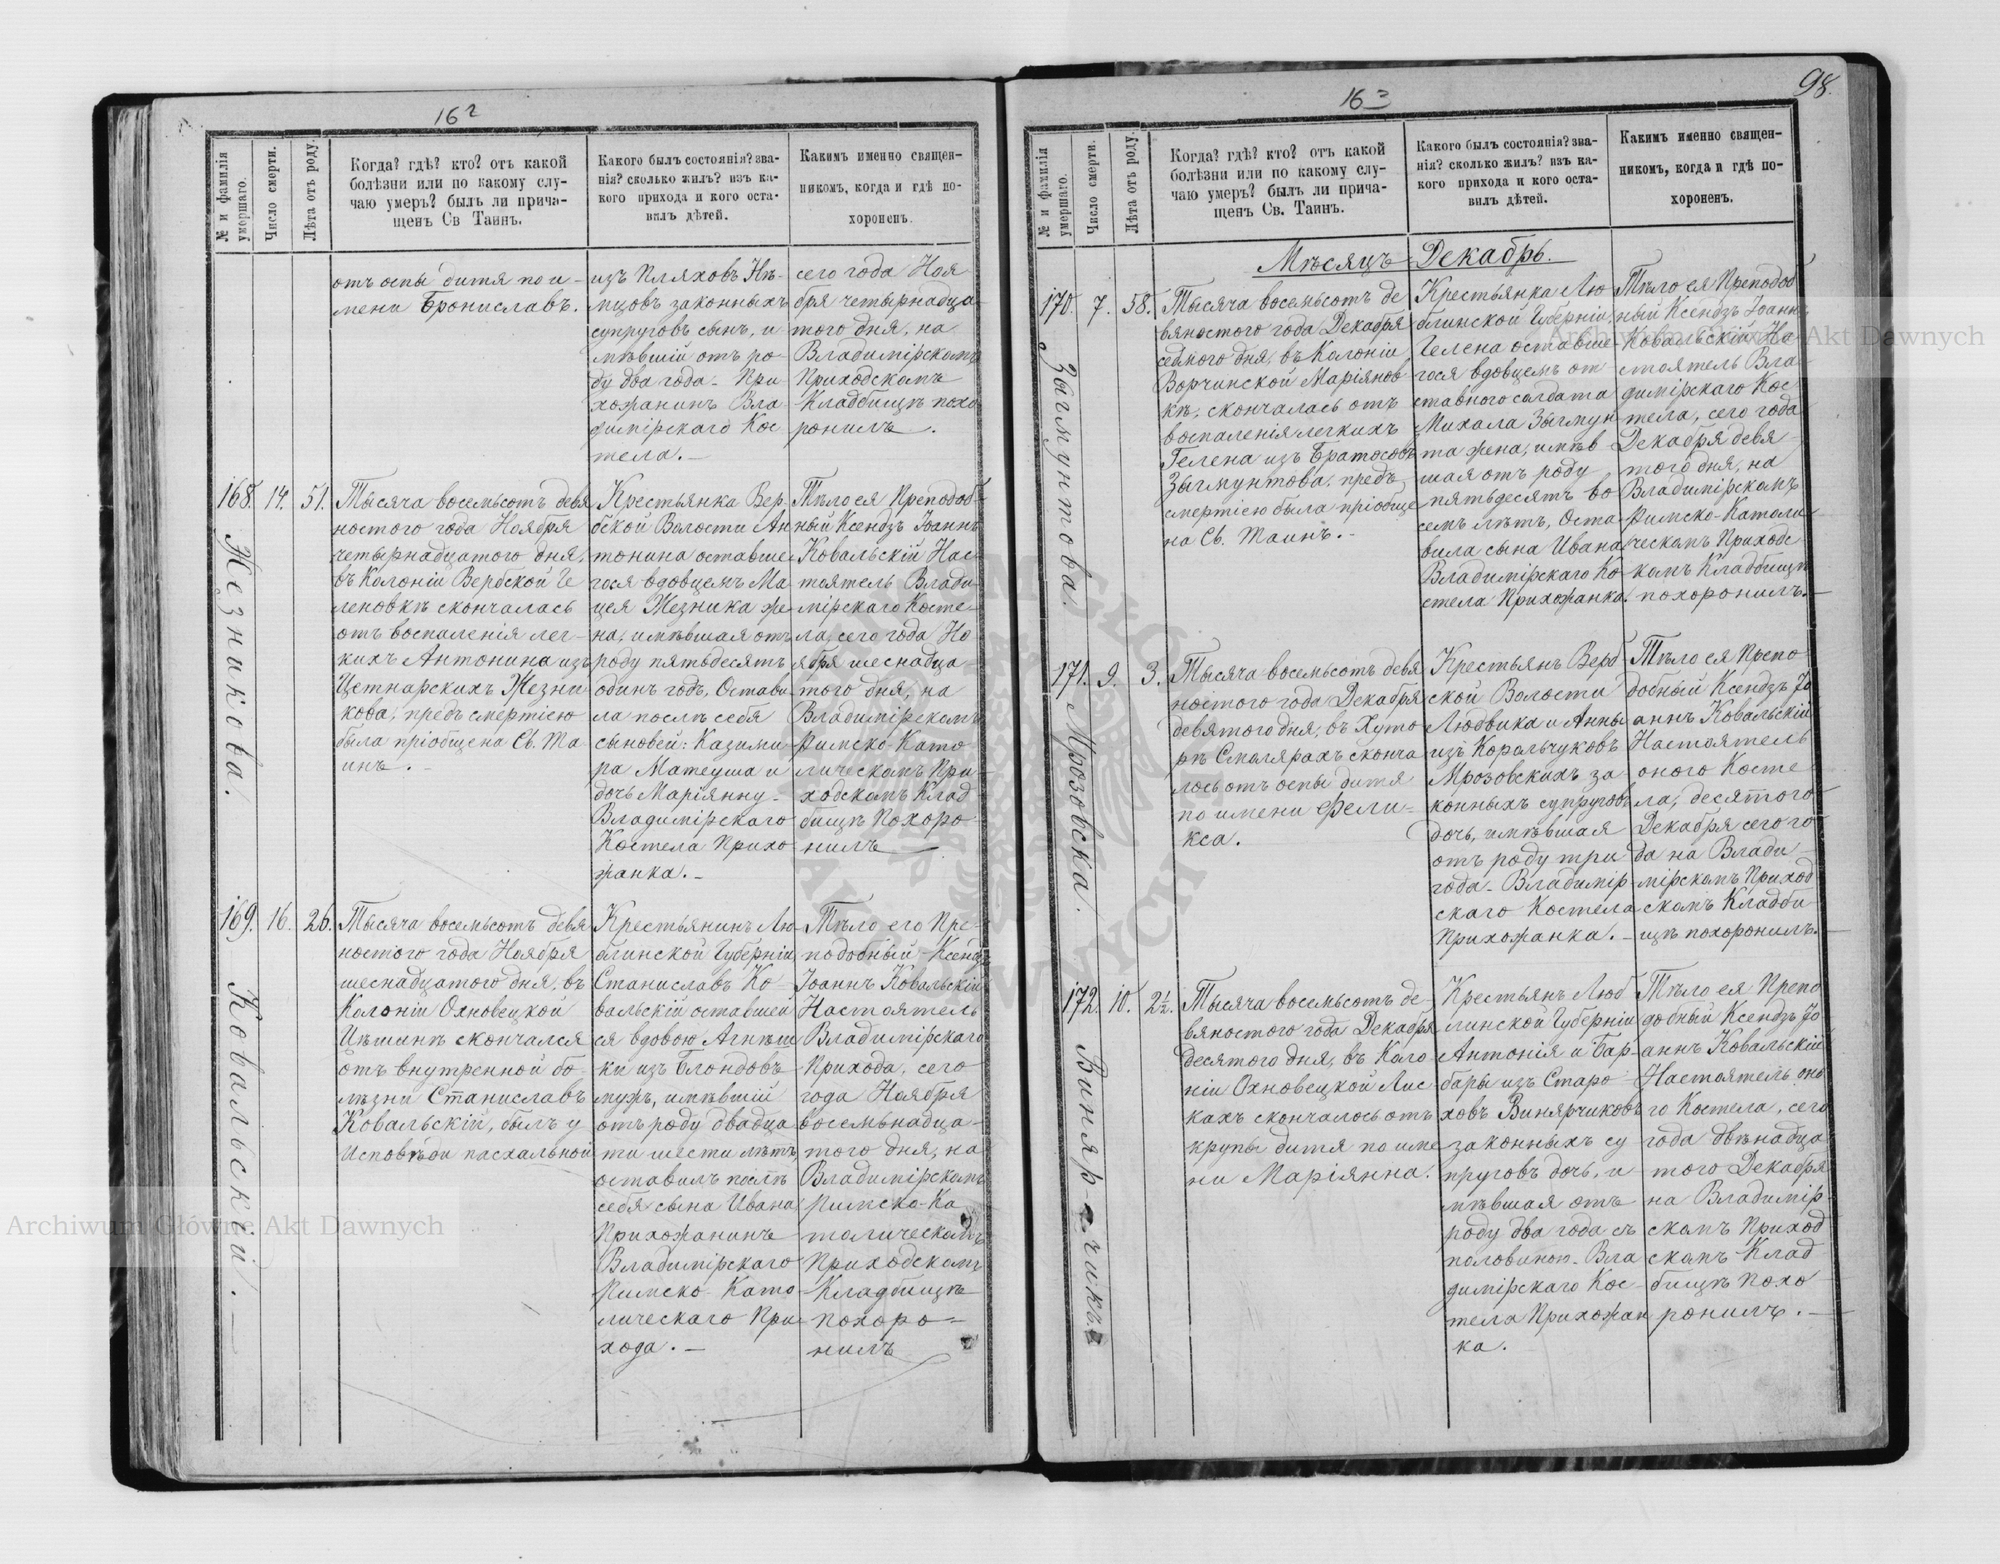 162
№ и фамилія умершаго.
Число смерти.
Лѣта отъ роду.
Когда? гдѣ? кто? отъ какой
болѣзни или по какому слу-
чаю умеръ? былъ ли прича-
щенъ Св Таинъ.
Какого былъ состоянія? зва-
нія? сколько жилъ? изъ ка-
кого прихода и кого оста-
вилъ дѣтей.
Какимъ именно священ-
никомъ, когда и гдѣ по-
хороненъ.
отъ оспы дитя по и-
мени Брониславъ.
изъ Пляховъ Нѣ-
мцовъ законныхъ
супруговъ сынъ, и
мѣвшій отъ ро-
ду два года - При
хожанинъ Вла
димірскаго Кос
тела. -
сего года Ноя
бря четырнадца-
того дня, на
Владимірскомъ
Приходскомъ
Кладбищѣ похо
ронилъ.
168.
14.
51.
Жезникова.
Тысяча восемьсотъ девя
ностого года Ноября
четырнадцатого дня,
въ Колоніи Вербской Ге
леновкѣ скончалась
отъ воспаленія лег-
кихъ Антонина изъ
Цетнарскихъ Жезни
кова, предъ смертію
была пріобщена Св. Та
инъ. -
Крестьянка Вер-
бской Волости Ан
тонина оставше
гося вдовцемъ Ма
цея Жезника же-
на, имѣвшая отъ
роду пятьдесятъ
одинъ годъ, Остави-
ла послѣ себя
сыновей: Казими
ра Матеуша и
дочь Маріянну -
Владимірскаго
Костела Прихо
жанка. -
Тѣло ея Преподоб-
ный Ксендзъ Іоаннъ
Ковальскій Нас-
тоятель Влади-
мірскаго Косте-
ла, сего года Но
ября шеснадца-
того дня, на
Владимірскомъ
Римско-Като-
лическомъ При-
ходскомъ Клад
бищѣ Похоро-
нилъ
169.
16.
26.
Ковальскій.
Тысяча восемьсотъ девя
ностого года Ноября
шеснадцатого дня, въ
Колоніи Охновецкой
Цѣшинѣ скончался
отъ внутренной бо-
лѣзни Станиславъ
Ковальскій, былъ у
Исповѣди пасхальной
Крестьянинъ Лю-
блинской Губерніи
Станиславъ Ко-
вальскій оставшей
ся вдовою Агнѣш
ки изъ Блондовъ
мужъ, имѣвшій
отъ роду двадца
ти шести лѣтъ,
оставилъ послѣ
себя сына Ивана
Прихожанинъ
Владимірскаго
Римско Като
лическаго При-
хода. -
Тѣло его Пре-
подобный Ксендзъ
Іоаннъ Ковальскій
Настоятель
Владимірскаго
Прихода, сего
года Ноября
восемьнадца-
того дня, на
Владимірскомъ
Римско-Ка
толическомъ
Приходскомъ
Кладбищѣ
похоро-
нилъ
163
98.
№ и фамилія умершаго.
Число смерти.
Лѣта отъ роду.
Когда? гдѣ? кто? отъ какой
болѣзни или по какому слу-
чаю умеръ? былъ ли прича-
щенъ Св. Таинъ.
Какого былъ состоянія? зва-
нія? сколько жилъ? изъ ка-
кого прихода и кого оста-
вилъ дѣтей.
Какимъ именно священ-
никомъ, когда и гдѣ по-
хороненъ.
Мѣсяцъ Декабрь.
170.
7.
58.
Зыгмунтова.
Тысяча восемьсотъ де
вяностого года Декабря
седмого дня, въ Колоніи
Ворчинской Маріянов
кѣ, скончалась отъ
воспаленія легкихъ
Гелена изъ Братосовъ
Зыгмунтова, предъ
смертіею была пріобще
на Св. Таинъ. -
Крестьянка Лю
блинской Губерніи,
Гелена оставше
гося вдовцемъ от
ставного солдата
Михала Зыгмун
та жена, имѣв
шая отъ роду
пятьдесятъ во
семъ лѣтъ, Оста
вила сына Ивана
Владимірскаго Ко
стела Прихожанка.
Тѣло ея Преподоб
ный Ксендзъ Іоаннъ
Ковальскій На
стоятель Вла
димірскаго Кос
тела, сего года
Декабря девя-
того дня, на
Владимірскомъ
Римско-Католи
ческомъ Приходс
комъ Кладбищѣ
похоронилъ. -
171.
9.
3.
Мрозовска.
Тысяча восемьсотъ девя
ностого года Декабря
девятого дня, въ Хуто
рѣ Смолярахъ сконча
лось отъ оспы дитя
по имени Фели-
кса.
Крестьянъ Верб
ской Волости
Людвика и Анны
изъ Коральчуковъ
Мрозовскихъ за
конныхъ супруговъ
дочь, имѣвшая
отъ роду три
года - Владимір
скаго Костела
Прихожанка. -
Тѣло ея Препо
добный Ксендзъ Іо
аннъ Ковальскій
Настоятель
оного Косте
ла, десятого
Декабря сего го
да на Влади-
мірскомъ Приход
скомъ Кладби
щѣ похоронилъ. -
172.
10.
2½.
Винярчикъ
Тысяча восемьсотъ де-
вяностого года Декабря
десятого дня, въ Коло
ніи Охновецкой Лис
кахъ скончалось отъ
крупы дитя по име
ни Маріянна.
Крестьянъ Люб
линской Губерніи
Антонія и Бар-
бары изъ Старо
ховъ Винярчиковъ
законныхъ су
пруговъ дочь, и
мѣвшая отъ
роду два года съ
половиною. Вла
димірскаго Кос-
тела Прихожан
ка.
Тѣло ея Препо
добный Ксендзъ Іо
аннъ Ковальскій
Настоятель оно
го Костела, сего
года двѣнадца
того Декабря
на Владимір-
скомъ Приход
скомъ Клад
бищѣ Похо-
ронилъ. -
Archiwum Główne Akt Dawnych
Archiwum Główne Akt Dawnych